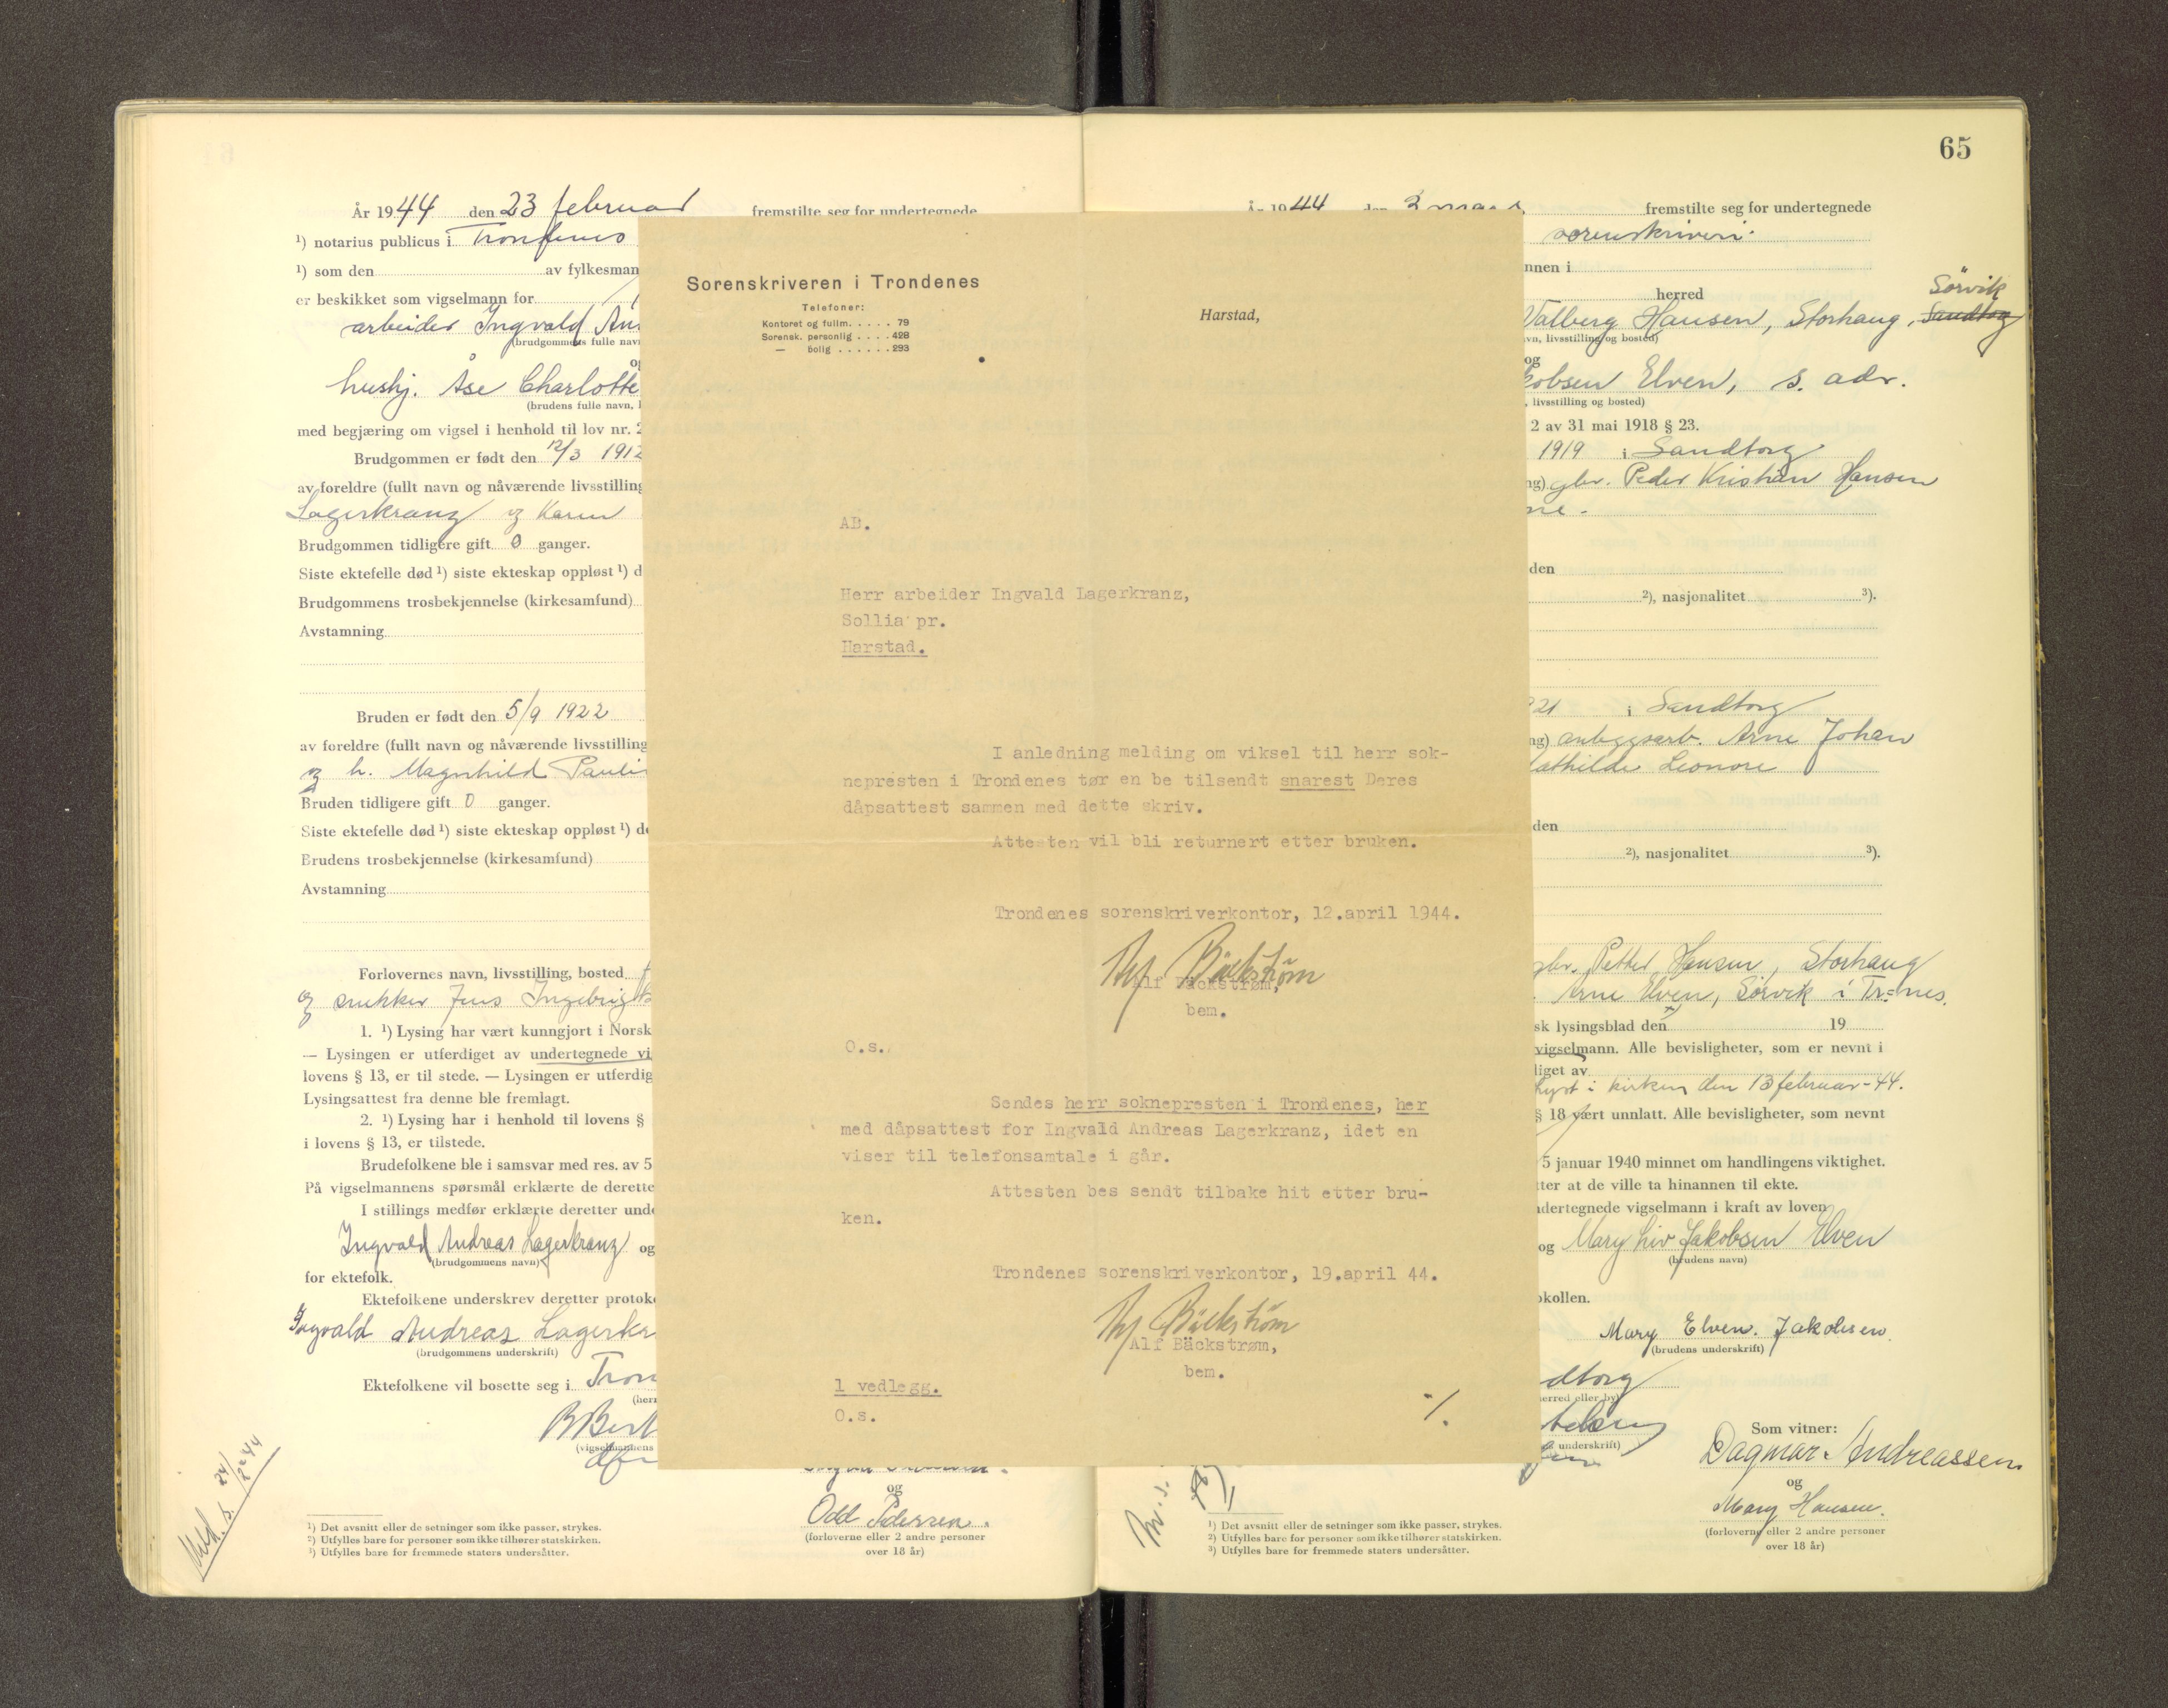 År 1944 den 23 februar fremstilte seg for undertegnede
¹) notarius publicus i Trondenes
¹) som den av fylkesman
er beskikket som vigselmann for
arbeider Ingvald An
(brudgommens fulle nav
og
hushj. Åse Charlotte
(brudens fulle navn, l
med begjæring om vigsel i henhold til lov nr. 2
Brudgommen er født den 12/3 1912
av foreldre (fullt navn og nåværende livsstilling
Lagerkranz og Karen
Brudgommen tidligere gift 0 ganger.
Siste ektefelle død ¹) siste ekteskap oppløst ¹) d
Brudgommens trosbekjennelse (kirkesamfund)
Avstamning
Bruden er født den 5/9 1922
av foreldre (fullt navn og nåværende livsstilling
og h. Magnhild Pauli
Bruden tidligere gift 0 ganger.
Siste ektefelle død ¹) siste ekteskap oppløst ¹) de
Brudens trosbekjennelse (kirkesamfund)
Avstamning
Forlovernes navn, livsstilling, bosted
og snekker Jens Ingebrigts
1. ¹) Lysing har vært kunngjort i Norsk
— Lysingen er utferdiget av undertegnede vi
lovens § 13, er til stede. — Lysingen er utferdig
Lysingsattest fra denne ble fremlagt.
2. ¹) Lysing har i henhold til lovens §
i lovens § 13, er tilstede.
Brudefolkene ble i samsvar med res. av 5
På vigselmannens spørsmål erklærte de derette
I stillings medfør erklærte deretter unde
Ingvald Andreas Lagerkranz og
(brudgommens navn)
for ektefolk.
Ektefolkene underskrev deretter protoko
Ingvald Andreas Lagerkr
(brudgommens underskrift)
Ektefolkene vil bosette seg i Tron
(herr
(vigselmannens
24/2 - 44
og
Odd Pedersen.
(forloverne eller 2 andre personer
over 18 år)
¹) Det avsnitt eller de setninger som ikke passer, strykes.
²) Utfylles bare for personer som ikke tilhører statskirken.
³) Utfylles bare for fremmede staters undersåtter.
Sorenskriveren i Trondenes
Telefoner:
Kontoret og fullm. . . . . 79
Sorensk. personlig . . . . 428
— bolig . . . . . . 293
Harstad,
AB.
Herr arbeider Ingvald Lagerkranz,
Sollia pr.
Harstad.
I anledning melding om viksel til herr sok-
nepresten i Trondenes tør en be tilsendt snarest Deres
dåpsattest sammen med dette skriv.
Attesten vil bli returnert etter bruken.
Trondenes sorenskriverkontor, 12.april 1944.
Alf Bäckstrøm
Alf Bäckstrøm,
bem.
O.s.
Sendes herr soknepresten i Trondenes, her
med dåpsattest for Ingvald Andreas Lagerkranz, idet en
viser til telefonsamtale i går.
Attesten bes sendt tilbake hit etter bru-
ken.
Trondenes sorenskriverkontor, 19.april 44.
Alf Bäckstrøm
Alf Bäckstrøm,
bem.
1 vedlegg.
O.s.
65
År 1944 den 3 mars fremstilte seg for undertegnede
sorenskriveri
nnen i
herred
Sørvik
Valberg Hansen, Storhaug, Sandtorg
vn, livsstilling og bosted)
og
kobsen Elven, s. adr.
, livsstilling og bosted)
2 av 31 mai 1918 § 23.
1919 i Sandtorg
ng) gbr. Peder Kristian Hansen
ne.
den
²), nasjonalitet ³).
921 i Sandtorg
ng) anleggsarb. Arne Johan
Mathilde Leonore
den
²), nasjonalitet ³).
gbr. Petter Hansen, Storhaug
Arne Elven, Sørvik i Tr=nes.
sk lysingsblad den 19
vigselmann. Alle bevisligheter, som er nevnt i
liget av
lyst i kirken den 13 februar - 44.
§ 18 vært unnlatt. Alle bevisligheter, som nevnt
5 januar 1940 minnet om handlingens viktighet.
tter at de ville ta hinannen til ekte.
ndertegnede vigselmann i kraft av loven
og Mary Liv Jakobsen Elven
(brudens navn)
okollen.
Mary Elven. Jakobsen.
(brudens underskrift)
dtorg
erred eller by)
underskrift)
Som vitner:
Dagmar Andreassen
og
Mary Hansen.
(forloverne eller 2 andre personer
over 18 år)
¹) Det avsnitt eller de setninger som ikke passer, strykes.
²) Utfylles bare for personer som ikke tilhører statskirken.
³) Utfylles bare for fremmede staters undersåtter.